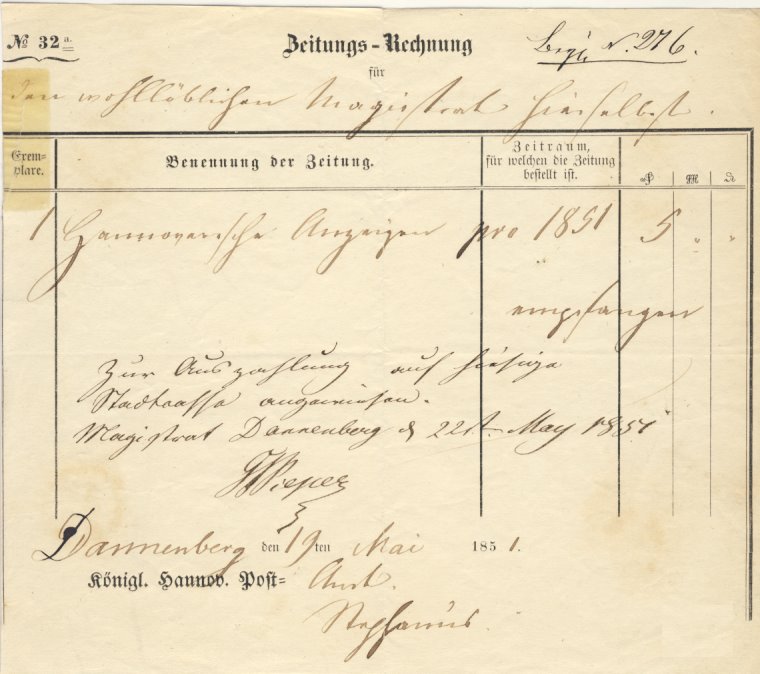 № 32 a.
Zeitungs-Rechnung
N. 276.
für
den wohllöblichen Magistrat hieselbst.
Exem-
plare.
Benennung der Zeitung.
Zeitraum,
für welchen die Zeitung
bestellt ist.
1 Hannoversche Anzeigen pro 1851 5 " "
empfangen
Zur Auszahlung auf hiesige
Stadtcasse angewiesen.
Magistrat Dannenberg d 22st May 1851
Pieper
Dannenberg den 19ten Mai 1851.
Königl. Hannov. Post-Amt.
Stephanus.